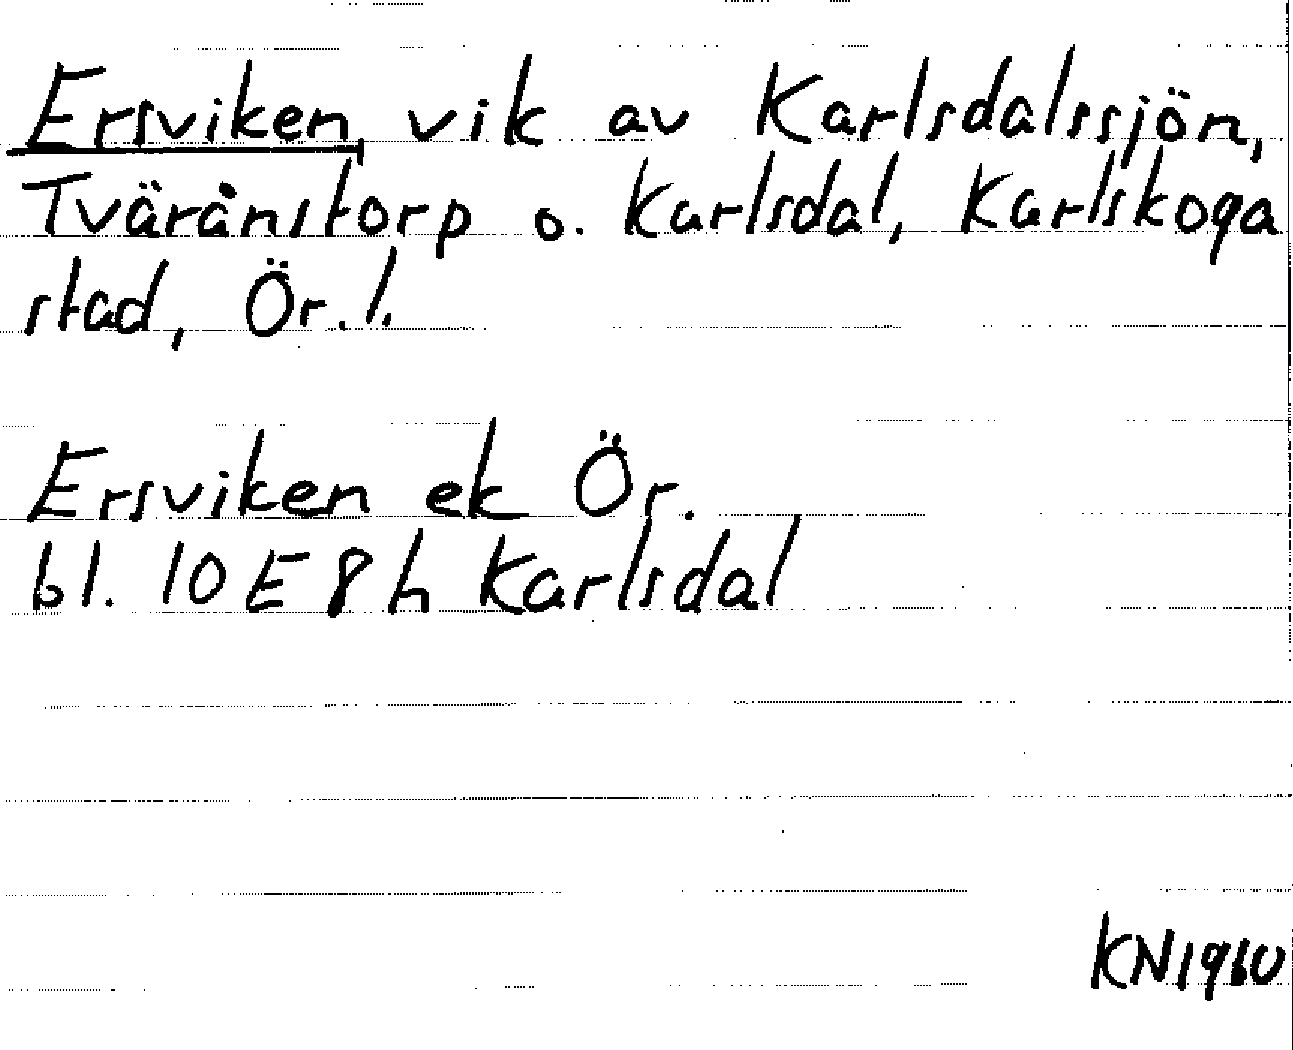 Ersviken, vik av Karlsdalssjön,
Tvärånstorp o. Karlsdal, Karlskoga
stad, Ör. l.
Ersviken ek Ör.
bl. 10 E 8 h Karlsdal
KN1960